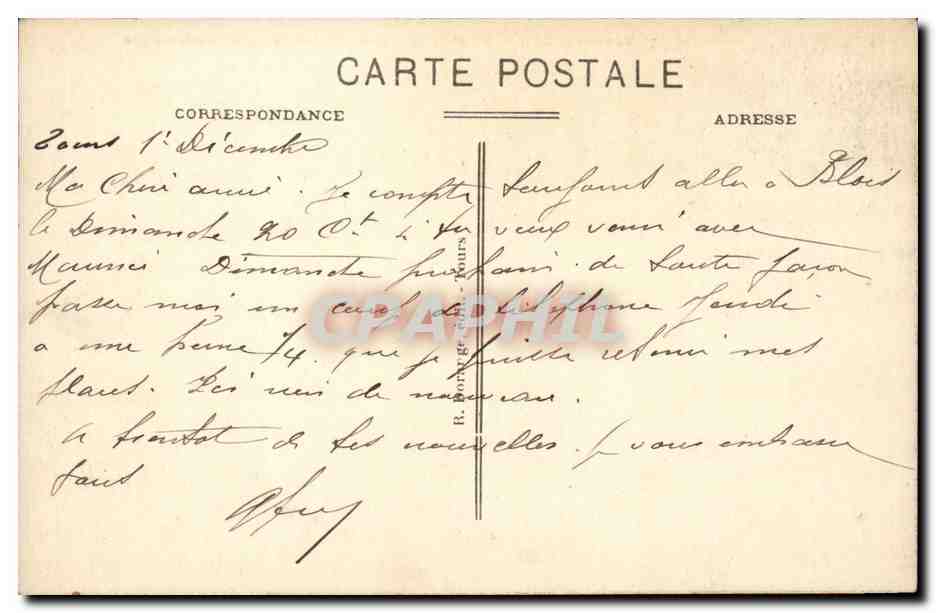 CARTE POSTALE
CORRESPONDANCE
ADRESSE
Tours 1er Décembre
Ma Chère amie. Je compte toujours aller à Blois
le Dimanche 20 Ct si tu veux venir avec
Maurice Dimanche prochain. de toute façon
passe moi un coup de téléphone Jeudi
a une heure 1/4 que je puisse retenir mes
places. Ici rien de nouveau.
A bientot de tes nouvelles. Je vous embrasse
tous
R. Dorange, édit. - Tours
CPAPHIL